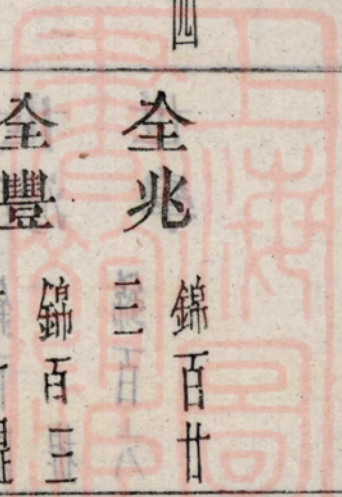 四
全兆 錦百廿
二
全豐 錦百三